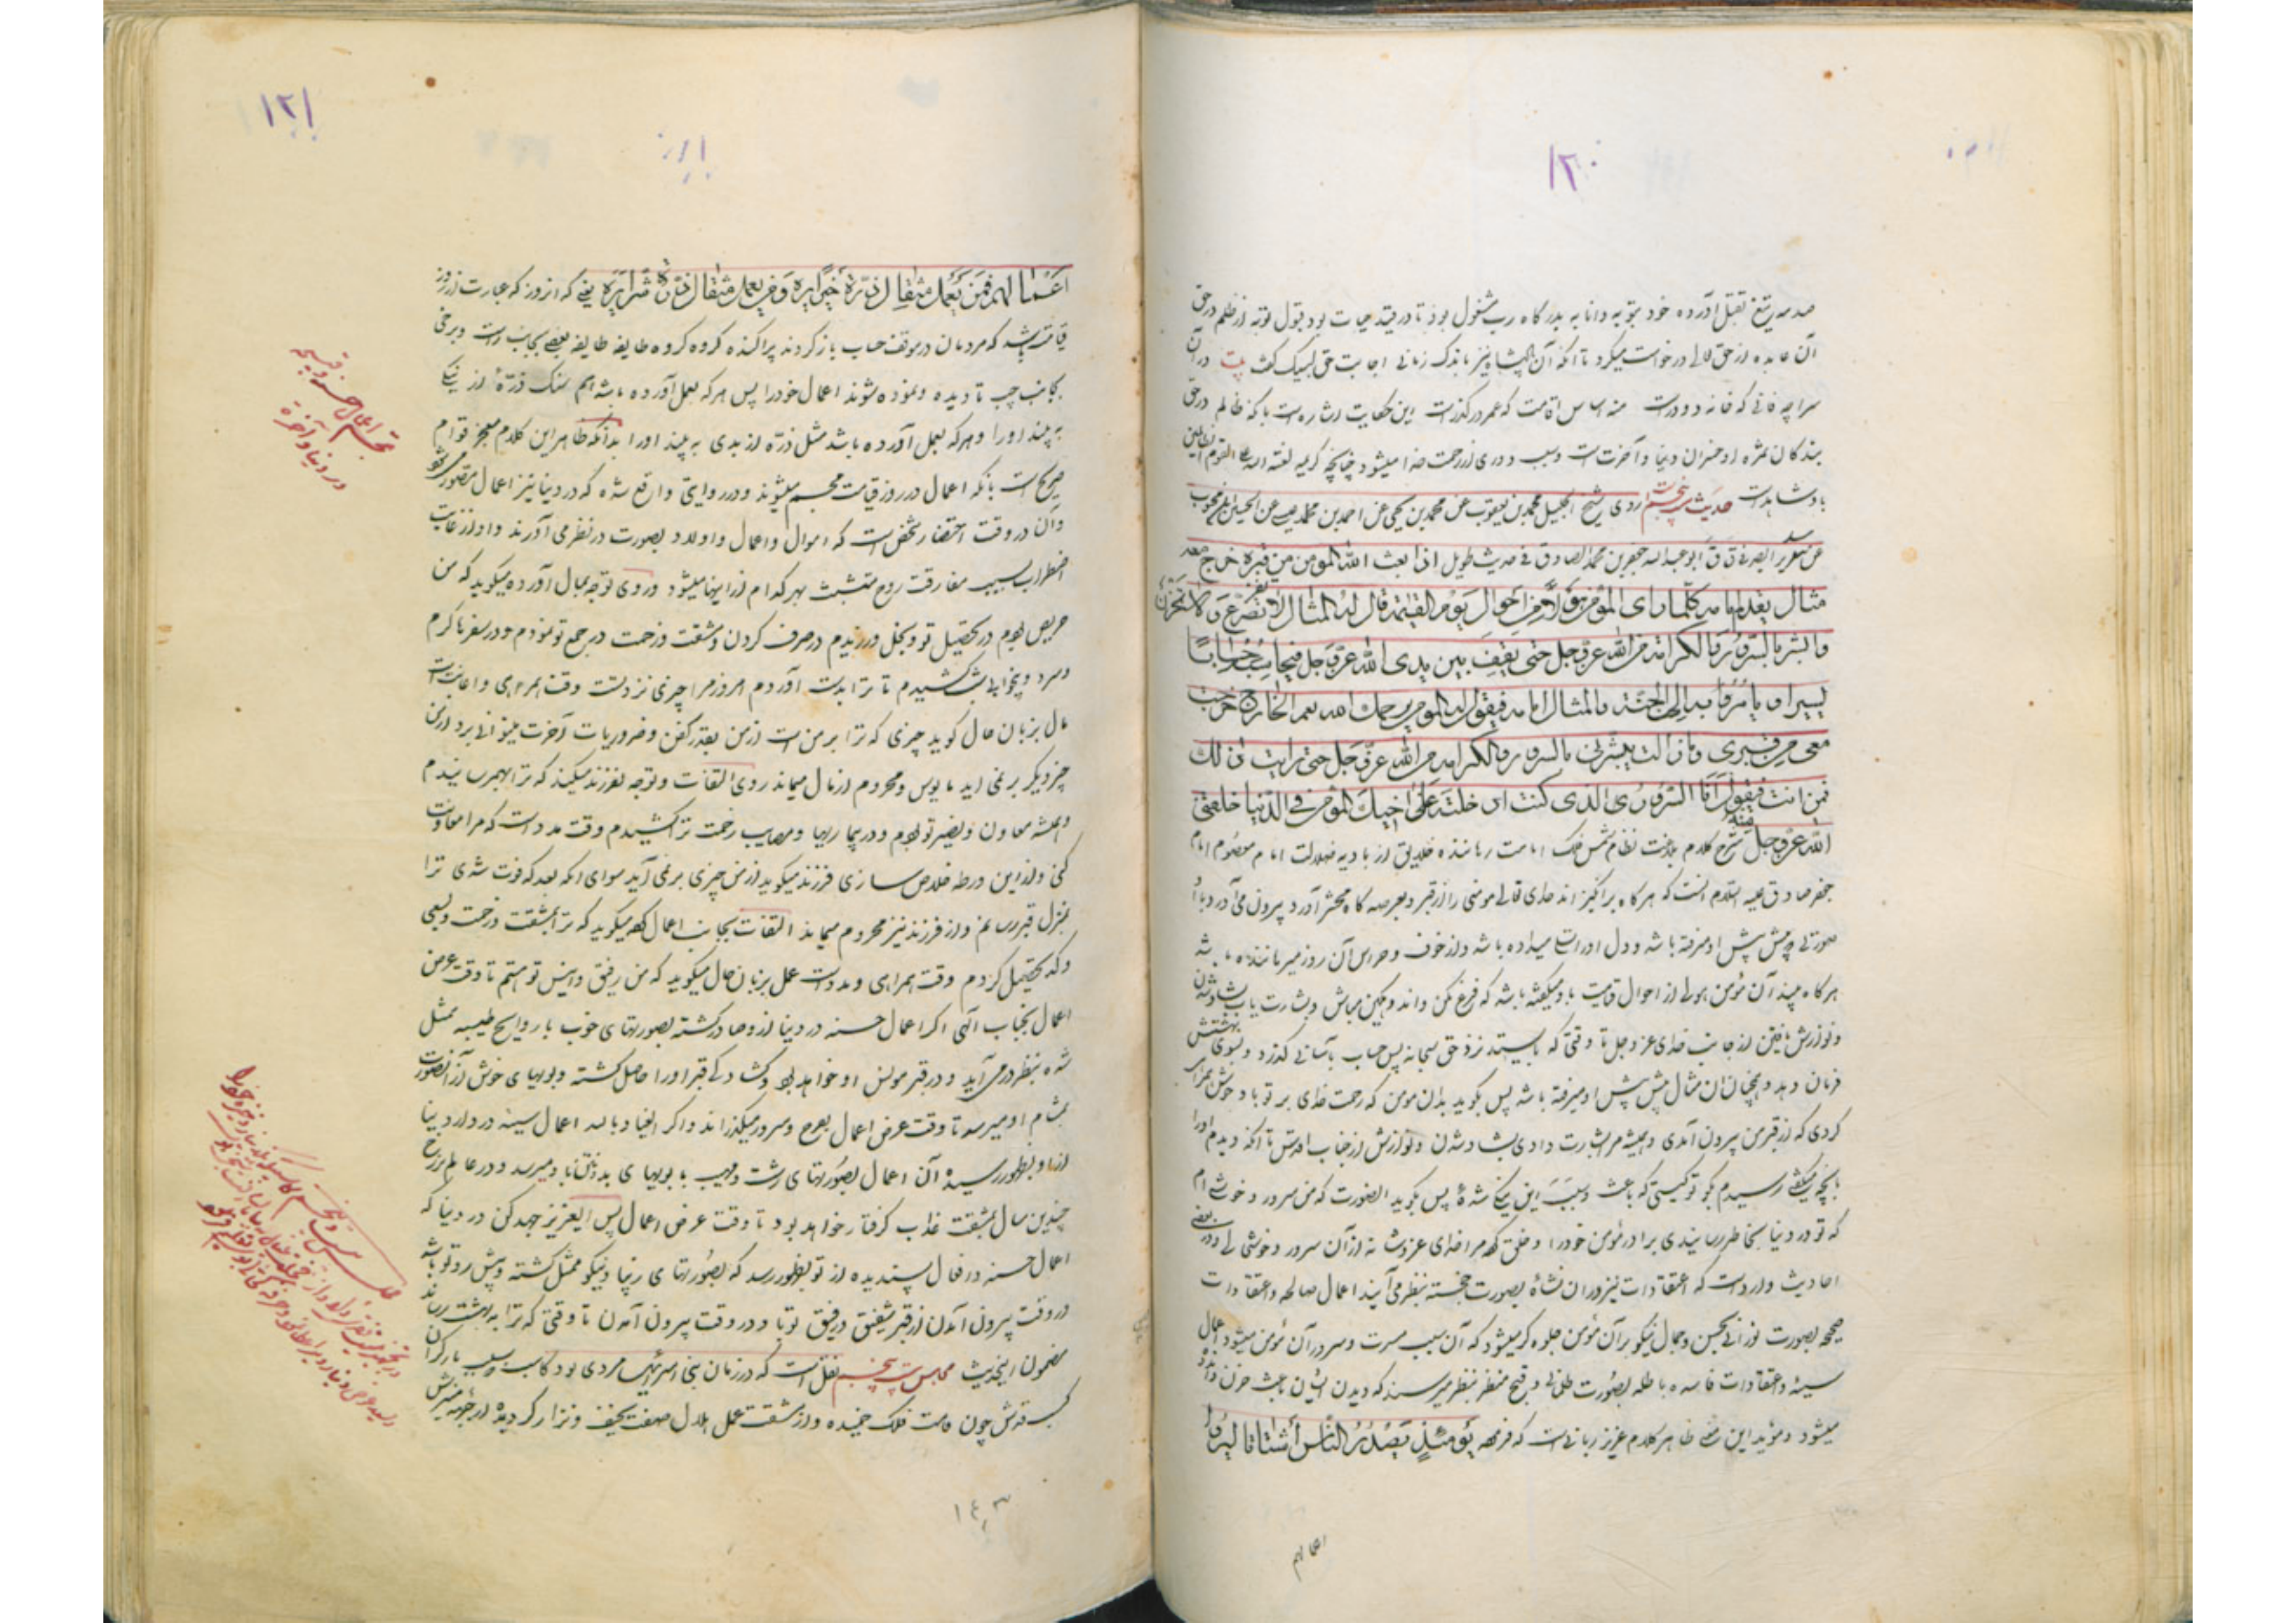 ١٢٠
صدمه تیغ بقتل آورده خود بتوبه و انابه بدرگاه رب مشغول بود تا در قید حیات بود قبول توبه از ظلم در حق
آن عابده از حق تعالی درخواست میکرد تا آنکه آن پادشاه نیز باندک زمانی اجابت حق لبیک گفت بیت در آن
سراچه فانی که خانه دو درست منه اساس اقامت که عمر در گذرست این حکایت اشاره است بانکه ظالم در حق
بندگان ثمره او خسران دنیا و آخرت است و سبب دوری از رحمت خدا میشود چنانچه کریمه لعنة الله علی القوم الظالمین
بادشاهدست حدیث بیست پنجم روی شیخ الجلیل محمد بن یعقوب عن محمد بن یحیی عن احمد بن محمد بن عیسی عن الحسن بن محبوب
عن سدیر الصیرفی قال قال ابو عبدالله جعفر بن محمد الصادق فی حدیث طویل اذا بعث الله المومن من قبره خرج معه
مثال یقدمه امامه کلما رای المؤمن هولا من احوال یوم القیمة قال له المثال لا تفزع و لا تحزن
و ابشر بالسرور و الکرامة من الله عز و جل حتی یقف بین یدی الله عز و جل فیحاسبه حسابا
یسیرا و یامر به الی الجنة و المثال امامه فیقول له المومن یرحمک الله نعم الخارج خرجت
معی من قبری و ما زالت تبشرنی بالسرور و الکرامة من الله عز و جل حتی رایت ذلک
فمن انت فیقول انا السرور الذی کنت ادخلته علی اخیک المؤمن فی الدنیا خلقنی
الله عز و جل منه شرح کلام بلاغت نظام شمس فلک امامت رهاننده خلایق از بادیه ضلالت امام معصوم امام
جعفر صادق علیه السلام انست که هرگاه برانگیزاند خدای تعالی مومنی را از قبر و بعرصه گاه محشر آورد بیرون می آورد با او
صورتی که پیش پیش او میرفته باشد و دل او را تسلی میداده باشد و از خوف و هراس آن روز میرهانیده باشد
هرگاه بیند آن مؤمن هولی از احوال قیامت باو میگفته باشد که فزع مکن و اندوهگین مباش و بشارت یاب بشاد شدن
و نوازش یافتن از جانب خدای عز و جل تا وقتی که بایستد نزد حق سبحانه پس حساب بآسانی گذرد و بسوی بهشتش
فرمان دهد و همچنان آن مثال پیش پیش او میرفته باشد پس بگوید بدان مومن که رحمت خدای بر تو باد خوش همراهی
کردی که از قبر من بیرون آمدی و همیشه مرا بشارت دادی بشاد شدن و نوازش از جناب اقدس تا آنکه دیدم او را
بآنچه میگفتی رسیدم بگو تو کیستی که باعث و سبب این نیکی شدهٔ پس بگوید الصورت که من سرور و خوشی ام
که تو در دنیا بخاطر رسانیدی برادر مؤمن خود را و خلق کرد مرا خدای عز و شانه از آن سرور و خوشی و در بعضی
احادیث وارد است که اعتقادات نیز در ان نشاه بصورت خجسته بنظر می آیند اعمال صالحه و اعتقادات
صحیحه بصورت نورانی بحسن و جمال نیکو بر آن مؤمن جلوه گر میشود که آن سبب مسرت و سرور آن مؤمن میشود و اعمال
سیئه و اعتقادات فاسده باطله بصورت ظلمانی و قبیح منظر بنظر میرسند که دیدن ایشان باعث حزن و اندوه
میشود و مؤید این معنی ظاهر کلام عزیز ربانی است که فرموده یومئذ یصدر الناس اشتاتا لیروا
اعمالهم
١٢١
اعمالهم فمن یعمل مثقال ذرة خیرا یره و من یعمل مثقال ذرة شرا یره یعنی که انروز که عبارت از روز
قیامت باشد که مردمان در موقف حساب باز گردند پراکنده گروه گروه طایفه طایفه بعضی بجانب راست و برخی
بجانب چپ تا دیده و نموده شوند اعمال خود را پس هر که بعمل آورده باشد هم سنگ ذرهٔ از نیکی
به بیند او را و هر که بعمل آورده باشد مثل ذره از بدی به بیند او را بدانکه ظاهر این کلام معجز قوام
صریح است بانکه اعمال در روز قیامت مجسم میشوند و در روایتی واقع شده که در دنیا نیز اعمال مصور میشود
و آن در وقت احتضار شخص است که اموال و اعمال و اولاد بصورت در نظر می آورند و او از غایت
اضطراب بسبب مفارقت روح متشبث بهر کدام از اینها میشود و روی توجه بمال آورده میگوید که من
حریص بودم در تحصیل تو و بخل ورزیدم در صرف کردن و مشقت و زحمت در جمع تو نمودم و در سفرها گرم
و سرد و بیخوابی شب کشیدم تا ترا بدست آوردم امروز مرا چیزی نزد تست وقت همراهی و اعانت است
مال بزبان حال گوید چیزی که ترا بر من است از من بقدر کفن و ضروریات آخرت میتوانی برد از من
چیز دیگر بر نمی اید مایوس و محروم از مال میماند روی التفات و توجه بفرزند میکند که ترا پرورانیدم
و همیشه معاون و نصیر تو بودم و در بیماریها و مصایب زحمت ترا کشیدم وقت مدد است که مرا معاونت
کنی و از این ورطه خلاص سازی فرزند میگوید از من چیزی بر نمی آید سوای انکه بعد که فوت شدی ترا
بمنزل قبر رسانم و از فرزند نیز محروم میماند التفات بجانب اعمال کرده میگوید که ترا بمشقت و زحمت و سعی
و کد تحصیل کردم وقت همراهی و مدد است عمل بزبان حال میگوید که من رفیق و انیس تو هستم تا وقت عرض
اعمال بجناب الهی اگر اعمال حسنه در دنیا از و صادر گشته بصورتهای خوب با روایح طیبه ممثل
شده بنظر در می آید و در قبر مونس او خواهد بود و گشادگی قبر او را حاصل گشته و بویهای خوش از آن صورت
بمشام او میرسد تا وقت عرض اعمال بفرح و سرور میگذراند و اگر العیاذ بالله اعمال سیئه در دار دنیا
از او بظهور رسیده آن اعمال بصورتهای زشت و مهیب با بویهای بد باو میرسد و در عالم برزخ
چندین سال بمشقت عذاب گرفتار خواهد بود تا وقت عرض اعمال پس ایعزیز جهد کن در دنیا که
اعمال حسنه و افعال پسندیده از تو بظهور رسد که بصورتهای زیبا و نیکو ممثل گشته و پیش رو تو باشد
در وقت بیرون آمدن از قبر شفیق و رفیق تو باد و در وقت بیرون آمدن تا وقتی که ترا به بهشت رساند
مضمون اینحدیث مجلس بیست پنجم نقل است که در زمان بنی اسرائیل مردی بود کاسب و بسبب بار گران
کسب قدش چون قامت فلک خمیده و از مشقت عمل هلال صفت نحیف و نزار گردیده
تجسم اعمال حسنه و قبیحه
در دنیا و آخرة
١٤٣